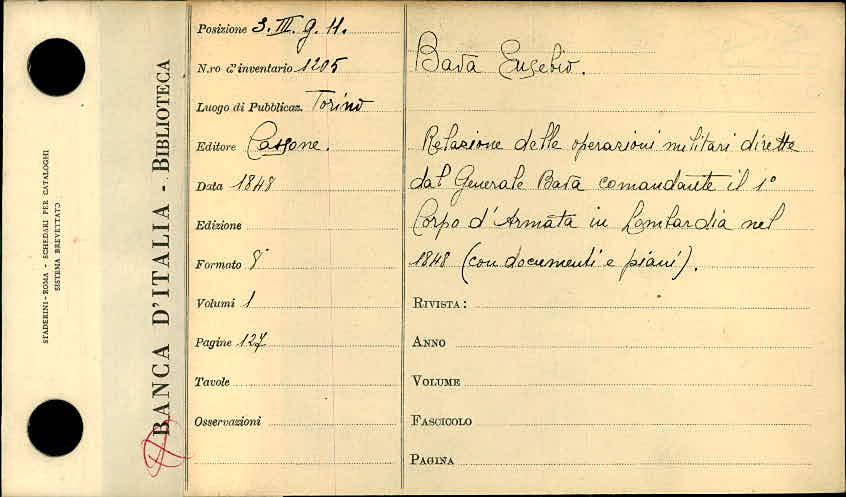 STADERINI - ROMA - SCHEDARI PER CATALOGHI
SISTEMA BREVETTATO
BANCA D'ITALIA - BIBLIOTECA
Posizione S. III. g. 11.
N.ro d'inventario 1205
Luogo di Pubblicaz. Torino
Editore Cassone.
Data 1848
Edizione
Formato 8°
Volumi 1
Pagine 127
Tavole
Osservazioni
Bava Eugebio.
Relazione delle operazioni militari dirette
dal Generale Bava comandante il 1°
Corpo d'Armata in Lombardia nel
1848 (con documenti e piani).
RIVISTA:
ANNO
VOLUME
FASCICOLO
PAGINA